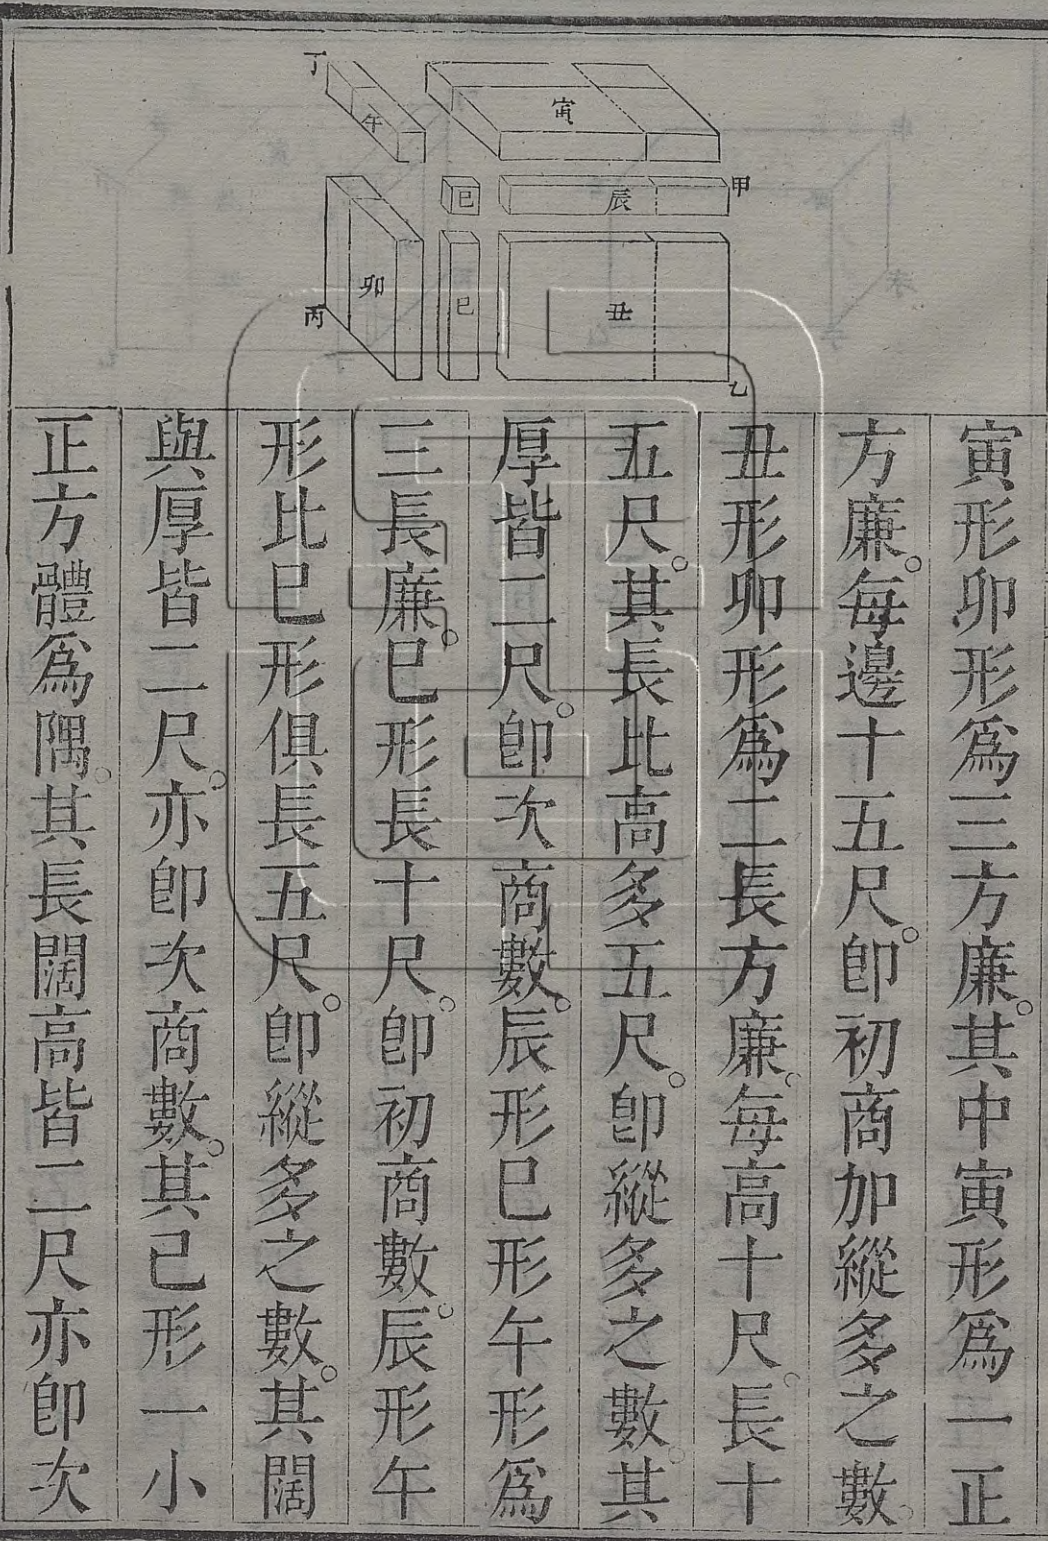 丁
午
寅
甲
己
辰
卯
巳
丑
丙
乙
寅形卯形爲三方廉。其中寅形爲一正
方廉。每邊十五尺。卽初商加縱多之數。
丑形卯形爲二長方廉。每高十尺。長十
五尺。其長比高多五尺。卽縱多之數。其
厚皆二尺。卽次商數。辰形巳形午形爲
三長廉。巳形長十尺。卽初商數。辰形午
形比巳形俱長五尺。卽縱多之數。其闊
與厚皆二尺。亦卽次商數。其己形一小
正方體爲隅。其長闊高皆二尺亦卽次